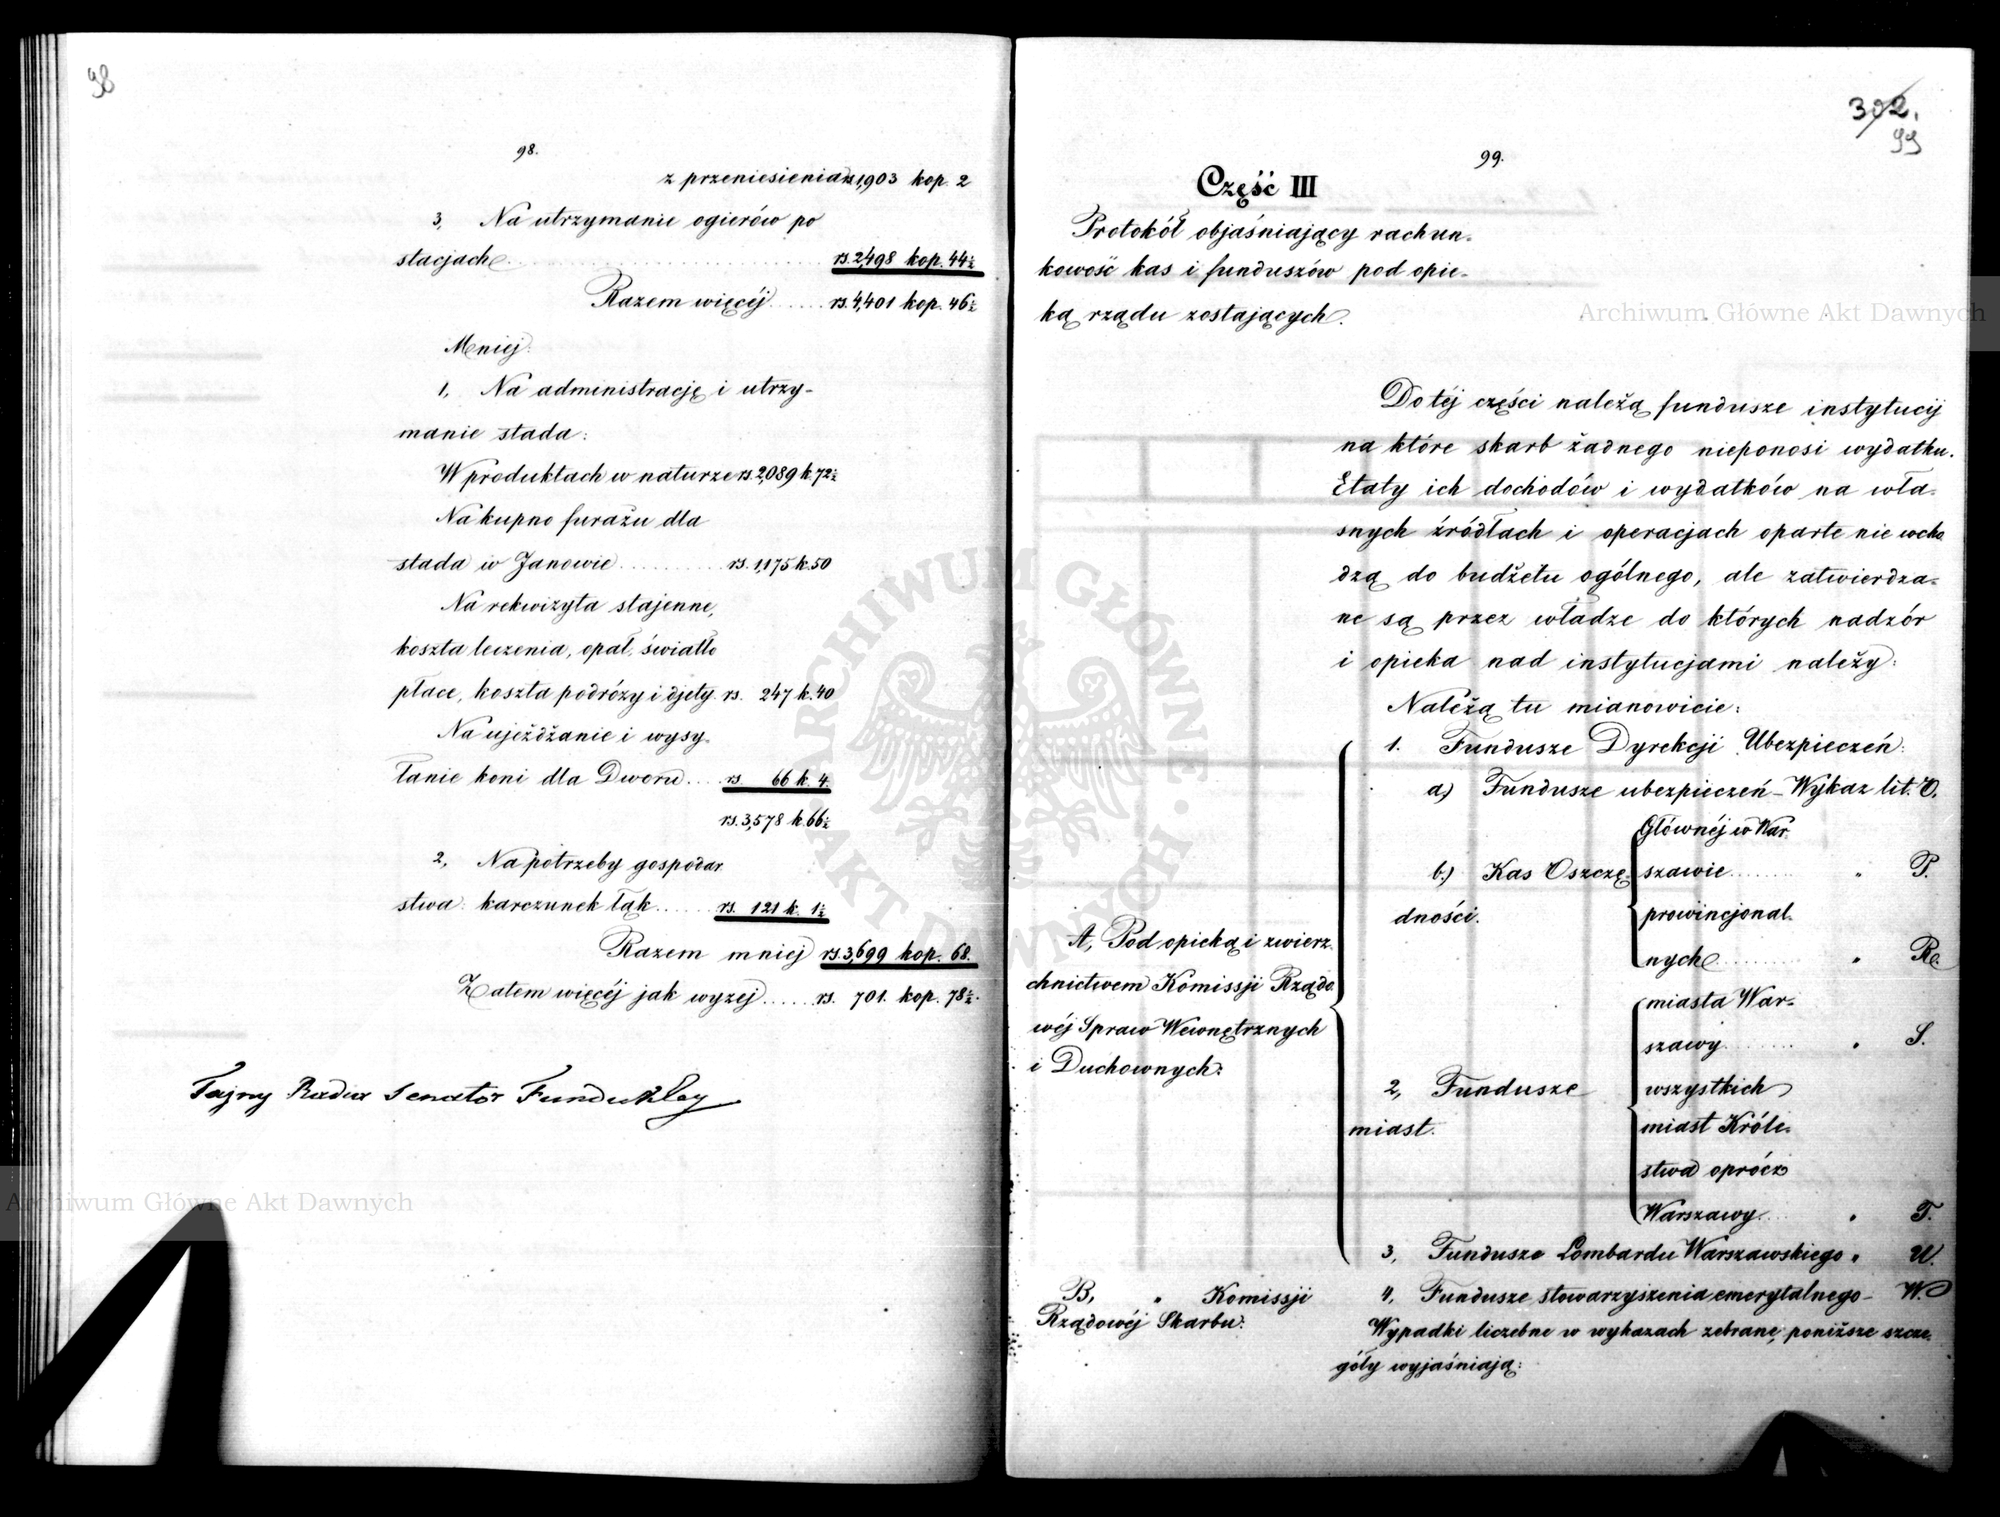 98
98.
z przeniesienia rs. 1,903 kop. 2
3, Na utrzymanie ogierów po
stacjach rs. 2,498 kop. 44½
Razem więcéj rs. 4,401 kop. 46½
Mniej:
1, Na administrację i utrzy-
manie stada:
W produktach w naturze rs. 2,089 k. 72½
Na kupno furażu dla
stada w Janowie rs. 1,175 k. 50
Na rekwizyta stajenne,
koszta leczenia, opał, światło
płace, koszta podróży i djety rs. 247 k. 40
Na ujeżdżanie i wysy-
łanie koni dla Dworu rs. 66 k. 4.
rs. 3,578 k. 66½
2, Na potrzeby gospodar
stwa: karczunek łąk rs. 121 k. 1½
Razem mniej rs. 3,699 kop. 68.
Zatem więcéj jak wyzej rs. 701. kop. 78½.
Tajny Radca Senator Funduklej
302.
99
99.
Część III
Protokół objaśniający rachun-
kowość kas i funduszów pod opie-
ką rządu zostających.
Do téj części należą fundusze instytucij
na które skarb żadnego nieponosi wydatku.
Etaty ich dochodów i wydatków na wła-
snych źródłach i operacjach oparte nie wcho
dzą do budżetu ogólnego, ale zatwierdza-
ne są przez władze do których nadzór
i opieka nad instytucjami należy:
Należą tu mianowicie:
A, Pod opieką i zwierz-
chnictwem Komissji Rządo
wéj Spraw Wewnętrznych
i Duchownych:
1. Fundusze Dyrekcji Ubezpieczeń:
a) Fundusze ubezpieczeń - Wykaz lit. O.
b) Kas Oszczę-
dności.
Głównéj w War
szawie " P.
prowincjonal-
nych " R.
2, Fundusze
miast.
miasta War-
szawy " S.
wszystkich
miast Króle-
stwa oprócz
Warszawy " T.
3, Fundusze Lombardu Warszawskiego " U.
B, " Komissji
Rządowéj Skarbu:
4, Fundusze stowarzyszenia emerytalnego - W.
Wypadki liczebne w wykazach zebrane, poniższe szcze-
góły wyjaśniają:
Archiwum Główne Akt Dawnych
Archiwum Główne Akt Dawnych
ARCHIWUM GŁÓWNE
AKT DAWNYCH